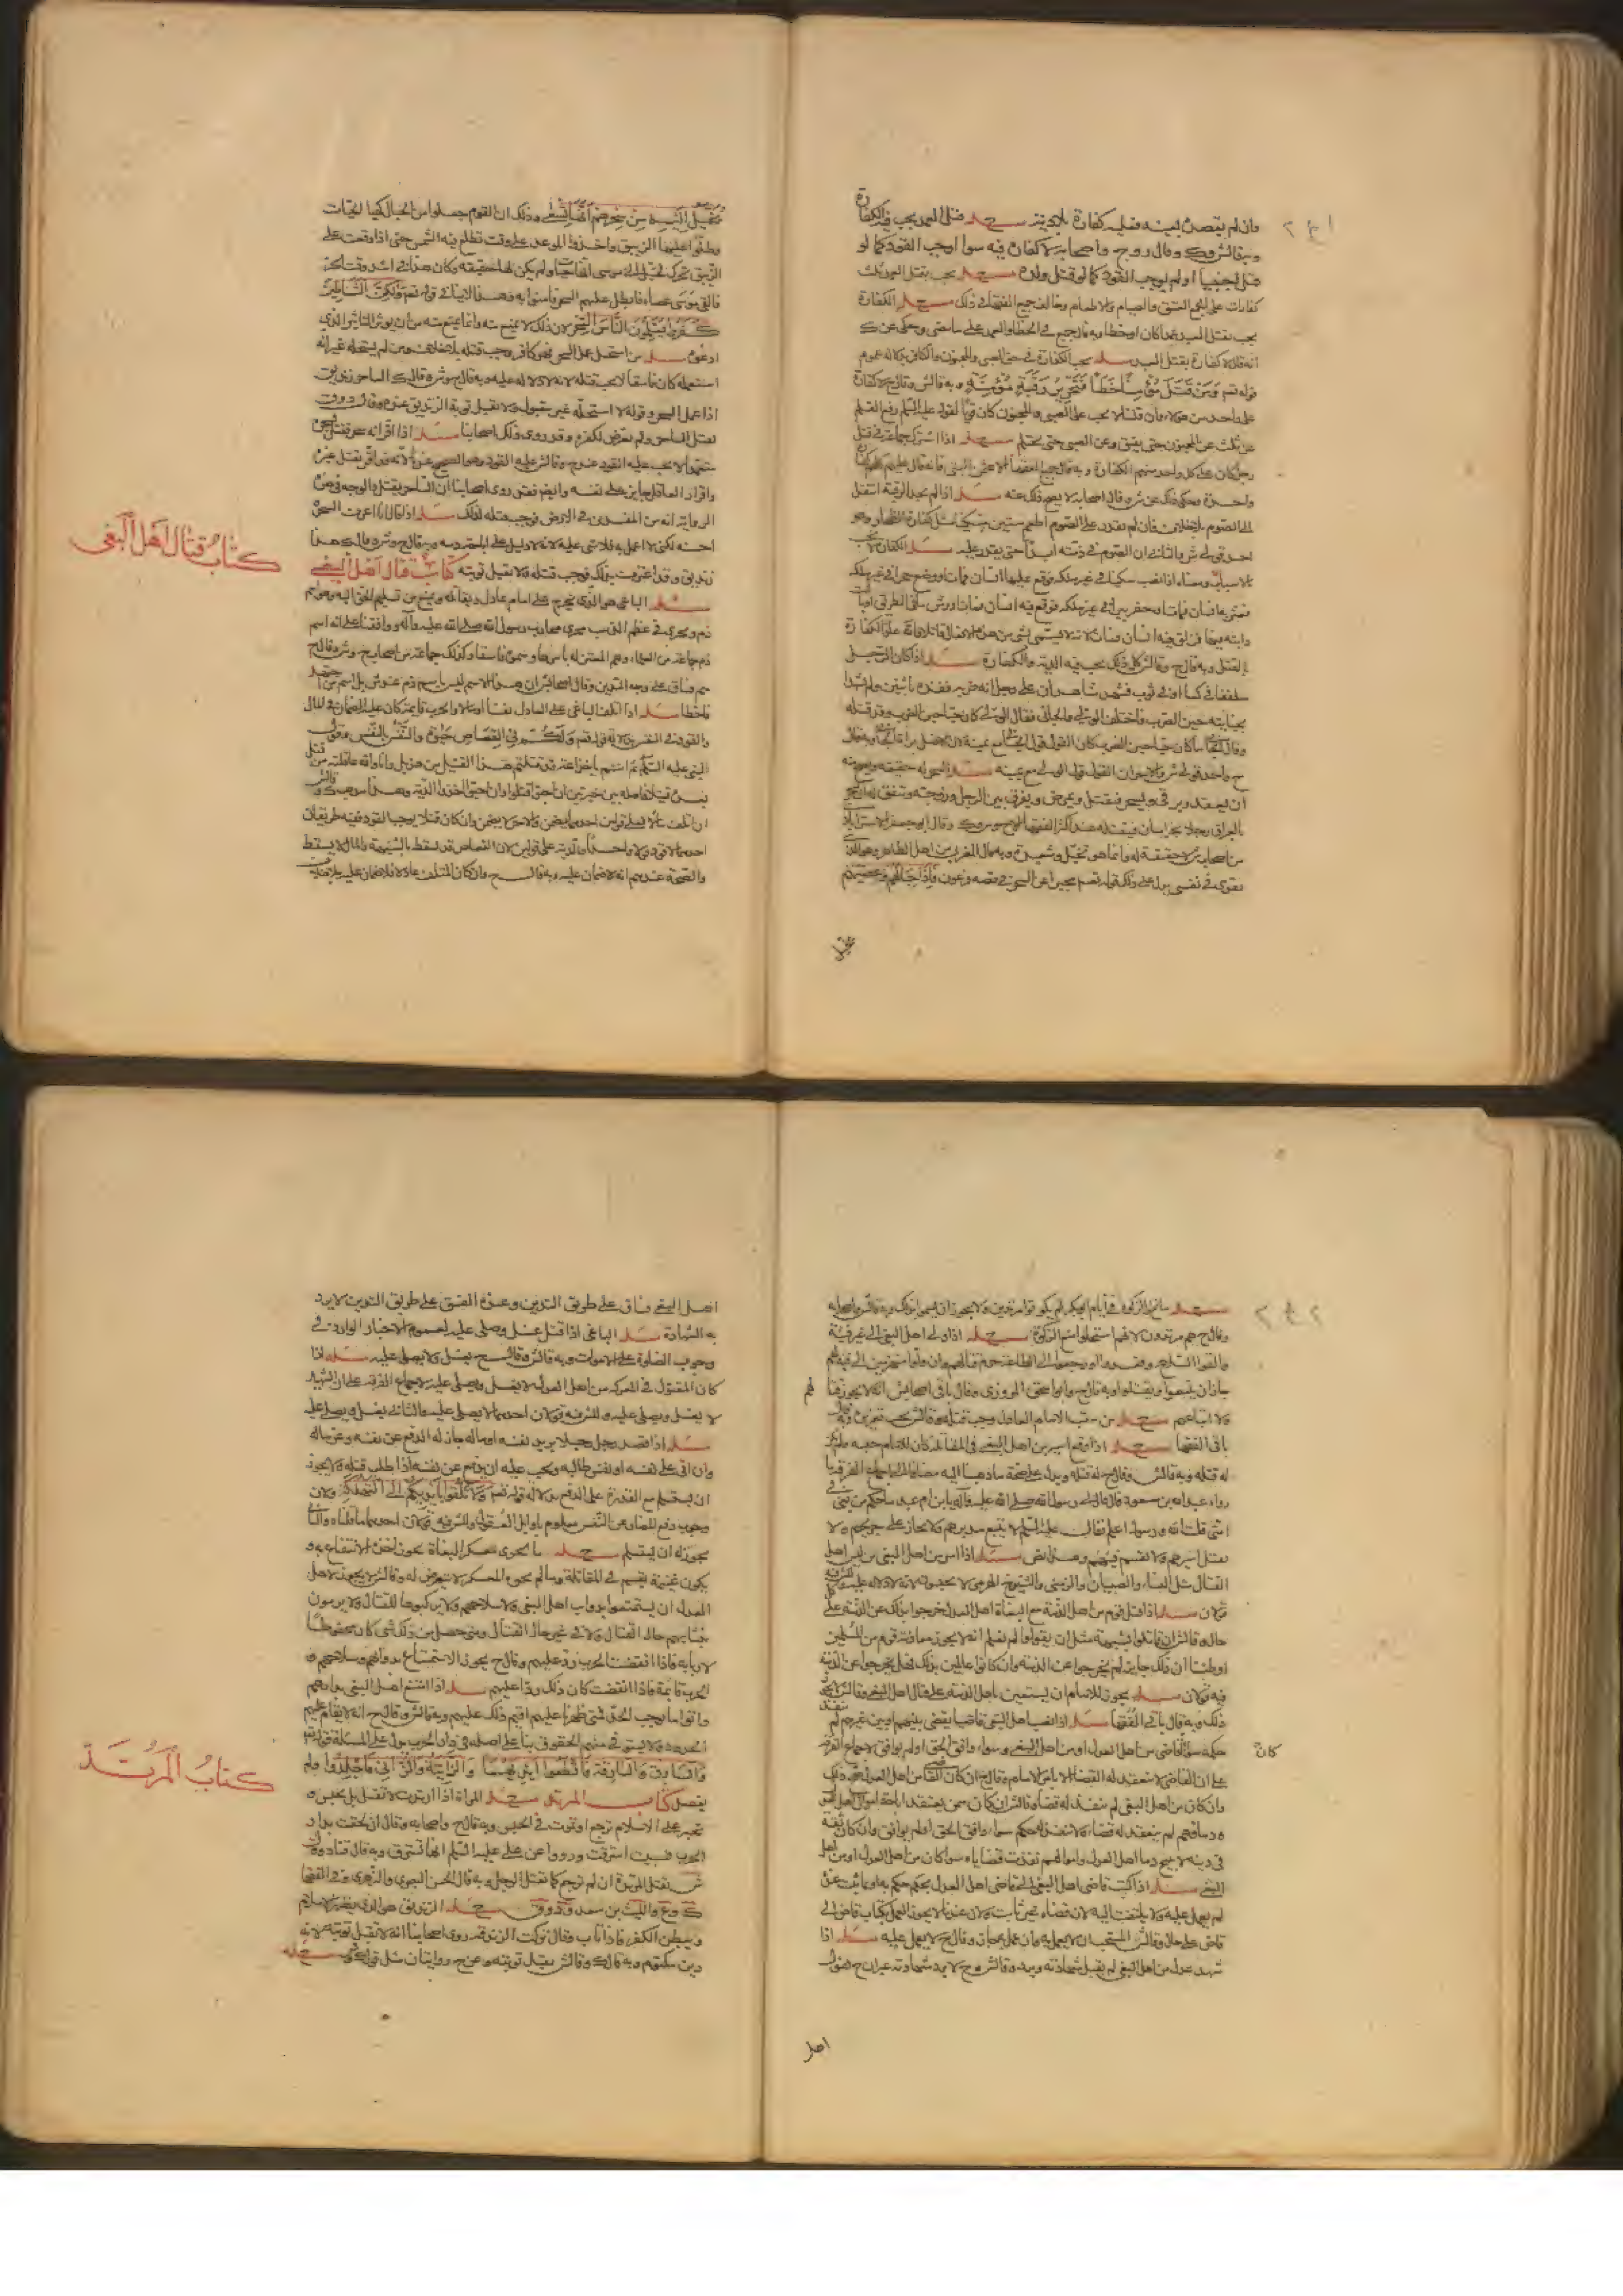 وان لم يقصده بعينه فعليه كفارة بلا دية مسئله قتل العمد يجب فيه الكفارة
وبه قال ش وك وقال ر و ح واصحابه لا كفارة فيه سواء اوجب القود كما لو
قتل اجنبيا او لم يوجب القود كما لو قتل ولده مسئله يجب بقتل العمد ثلث
كفارات على الجمع العتق والصيام والاطعام وخالف جميع الفقهاء في ذلك مسئله الكفارة
يجب بقتل العبد عمدا كان او خطأ وبه قال جميع في الخطأ والعمد على ما مضى وحكى عن ك
انه قال لا كفارة بقتل العبد مسئله يجب الكفارة في حق الصبي والمجنون والكافر بدلالة عموم
قوله تعم وَمَنْ قَتَلَ مُؤْمِنًا خَطَأً فَتَحْرِيرُ رَقَبَةٍ مُؤْمِنَةٍ وبه قال ش وقال ح لا كفارة
على واحد من هؤلاء وان قلنا لا يجب على الصبي والمجنون كان قويا لقوله عليه السلم رفع القلم
عن ثلث عن المجنون حتى يفيق وعن الصبي حتى يحتلم مسئله اذا اشترك جماعة في قتل
رجل كان على كل واحد منهم الكفارة وبه قال جميع الفقهاء الا عثمان البتي فانه قال عليهم كلهم كفارة
واحدة وحكي ذلك عن ش وقال اصحابه لا يصح ذلك عنه مسئله اذا لم يجد الرقبة انتقل
الى الصوم بلا خلاف فان لم يقدر على الصوم اطعم ستين مسكينا مثل كفارة الظهار وهو
احد قولي ش والثاني ان الصوم في ذمته ابدا حتى يقدر عليه مسئله الكفارة لا تجب
بالاسباب ومعناه اذا نصب سكينا في غير ملكه فوقع عليها انسان فمات او وضع حجرا في غير ملكه
فتعثر به انسان فمات او حفر بئرا في غير ملكه فوقع فيه انسان فمات او رش ماء في الطريق او بالت
دابته فيها فزلق فيه انسان فمات لانه لا يسمى بشئ من هذه الافعال قاتلا وانما علق الكفارة
بالقتل وبه قال ح وقال ش كل ذلك يجب فيه الدية والكفارة مسئله اذا كان الرجل
ملففا في كساء او في ثوب فشهد شاهدان على رجل انه ضربه فقده باثنين ولم يشهدا
بحياته حين الضرب فاختلف الولي والجاني فقال الولي كان حيا حين الضرب وقد قتله
وقال الجاني ما كان حيا حين الضرب كان القول قول الجاني مع يمينه لان الاصل براءة الذمة وبه قال
ح واحد قولي ش والاخر ان القول قول الولي مع يمينه مسئله السحر له حقيقة ويصح منه
ان يعقد ويرقي ويسحر فيقتل ويمرض ويفرق بين الرجل وزوجته ويتفق له ان يسحر
بالعراق رجلا بخراسان فيقتله عند اكثر الفقهاء ح وص وم وك وقال ابو جعفر الاستراباذي
من اصحاب ش لا حقيقة له وانما هو تخيل وشعبذة وبه قال المغربي من اهل الظاهر وهو الذي
يقوى في نفسي يدل على ذلك قوله تعم مخبرا عن السحرة في قصة فرعون فَإِذَا حِبَالُهُمْ وَعِصِيُّهُمْ
يخيل
يُخَيَّلُ إِلَيْهِ مِنْ سِحْرِهِمْ أَنَّهَا تَسْعَى وذلك ان القوم جعلوا من الحبال كهيئة الحيات
وطلوا عليها الزيبق واخذوا الموعد على وقت تطلع فيه الشمس حتى اذا وقعت على
الزيبق تحرك فخيل الى موسى انها حيات ولم يكن لها حقيقة وكان هذا في اشد وقت الحر
فالقى موسى عصاه فابطل عليهم السحر فآمنوا به وهذا لا ينافي قوله تعم وَلَكِنَّ الشَّيَاطِينَ
كَفَرُوا يُعَلِّمُونَ النَّاسَ السِّحْرَ لان ذلك لا يمنع منه وانما يمنع منه من ان يؤثر التأثير الذي
ادعوه مسئله من استحل عمل السحر فهو كافر وجب قتله بلا خلاف ومن لم يستحله غير انه
استعمله كان فاسقا لا يجب قتله لانه لا دلالة عليه وبه قال ح وش وقال ك الساحر زنديق
اذا عمل السحر وقوله لا استحله غير مقبول ولا تقبل توبة الزنديق عنده وقال
يقتل الساحر ولم يتعرض لكفره وقد روى ذلك اصحابنا مسئله اذا اقر انه سحر فقتل بسحره
متعمدا لا يجب عليه القود عند ح وقال ش عليه القود وهو الصحيح عندنا لانه قد اقر بقتل غيره
واقرار العاقل جايز على نفسه وايضا فقد روى اصحابنا ان الساحر يقتل والوجه في هذه
الرواية انه من المفسدين في الارض فوجب قتله لذلك مسئله اذا قال انا اعرف السحر
احسنه لكني لا اعمل به فلا شئ عليه لانه لا دليل على وبه قال ح وش وقال ك هذا
زنديق وقد اعترف بذلك فوجب قتله ولا يقبل توبته كتاب قتال اهل البغي
كتاب قتال اهل البغي
مسئله الباغي هو الذي يخرج على امام عادل ويقاتله ويمنع من تسليم الحق اليه وهو اسم
ذم ويجري في عظم الذنب مجرى محارب رسول الله صلى الله عليه وآله ووافقنا على انه اسم
ذم جماعة من العلماء وهم المعتزلة باسرها وسموه فاسقا وكذلك جماعة من اصحاب ح وش وقال ح
هم فساق على وجه التدين وقال اصحاب ش ان هذا الاسم ليس باسم ذم عند ش بل اسم من اجتهد
فاخطأ مسئله اذا اتلف الباغي على العادل نفسا او مالا والحرب قايمة كان عليه الضمان في المال
والقود في النفس بدلالة قوله تعم وَلَكُمْ فِي الْقِصَاصِ حَيَوةٌ والنَّفْسَ بِالنَّفْسِ وقول
النبي عليه السلم ثم انتم يا خزاعة قد قتلتم هذا القتيل من هذيل وانا والله عاقله من قتل
بعده قتيلا فاهله بين خيرتين ان احبوا قتلوا وان احبوا اخذوا الدية وهذا مذهب ك وقال ش
ان اتلف مالا فعلى قولين احدهما يضمن والاخر لا يضمن وان كان قتلا يوجب القود ففيه طريقان
احدهما لا قود قولا واحدا والدية على قولين لان القصاص قد يسقط بالشبهة والمال لا يسقط
والصحيح عندهم انه لا ضمان عليه وبه قال ح وان كان المتلف عادلا فلا ضمان عليه بلا خلاف
مسئله مانعوا الزكوة في ايام ابي بكر لم يكونوا مرتدين ولا يجوز ان يسموا بذلك وبه قال ش واصحابه
وقال ح هم مرتدون لانهم استحلوا منع الزكوة مسئله اذا ولى اهل البغي الى غير فئة
والقوا السلاح وقعدوا او رجعوا الى الطاعة حرم قتالهم وان ولوا منهزمين الى فئة لهم
جاز ان يتبعوا ويقتلوا وبه قال ح وابو اسحق المروزي وقال باقي اصحاب ش انه لا يجوز قتالهم
ولا اتباعهم مسئله من سب الامام العادل وجب قتله وقال ش يجب تعزيره وبه قال
باقي الفقهاء مسئله اذا وقع اسير من اهل البغي في المقاتلة كان للامام حبسه ولم يكن
له قتله وبه قال ش وقال ح له قتله ويدل على صحة ما ذهبنا اليه مضافا الى اجماع الفرقة ما
رواه عبد الله بن مسعود قال قال لي رسول الله صلى الله عليه وآله يا ابن ام عبد ما حكم من بغى من
امتي قلت الله ورسوله اعلم فقال عليه السلم لا يتبع مدبرهم ولا يجاز على جريحهم ولا
يقتل اسيرهم ولا يقسم فيئهم وهذا نص مسئله اذا اسر من اهل البغي من ليس من اهل
القتال مثل النساء والصبيان والزمنى والشيوخ الهرمى لا يحبسون لانه لا دلالة عليه وللش فيه
قولان مسئله اذا قاتل قوم من اهل الذمة مع البغاة اهل العدل خرجوا بذلك عن الذمة على كل
حال وقال ش ان قاتلوا بشبهة مثل ان يقولوا لم نعلم انه لا يجوز معاونة قوم من المسلمين
او ظننا ان ذلك جايز لم يخرجوا عن الذمة وان كانوا عالمين بذلك فهل يخرجوا عن الذمة
فيه قولان مسئله يجوز للامام ان يستعين باهل الذمة على قتال اهل البغي وقال ش لا يجوز
ذلك وبه قال باقي الفقهاء مسئله اذا نصب اهل البغي قاضيا يقضي بينهم او بين غيرهم لم ينفذ
حكمه سواء كان القاضي من اهل العدل او من اهل البغي وسواء وافق الحق او لم يوافق لاجماع الفرقة
على ان القاضي لا ينعقد له القضاء الا باذن الامام وقال ح ان كان القاضي من اهل العدل نفذ ذلك
وان كان من اهل البغي لم ينعقد له قضاء وقال ش ان كان ممن يعتقد اباحة اموال اهل العدل
ودماءهم لم ينعقد له قضاء ولا ينفذ له حكم سواء وافق الحق او لم يوافق وان كان ثقة
في دينه لا يبيح دماء اهل العدل واموالهم نفذت قضاياه سواء كان من اهل العدل او من اهل
البغي مسئله اذا كتب قاضي اهل البغي الى قاضي اهل العدل بحكم حكم به او بما ثبت عنده
لم يعمل عليه ولا يلتفت اليه لان قضاءه غير ثابت ولان عندنا لا يجوز العمل بكتاب قاض الى
قاض على حال وقال ش المستحب ان لا يعمل به وان عمل به جاز وقال ح لا يعمل عليه مسئله اذا
شهد عدل من اهل البغي لم يقبل شهادته وبه وقال ش و ح لا يرد شهادته غير ان ح يقول
اهل
اهل البغي فساق على طريق التدين وعنده الفسق على طريق التدين لا يرد
به الشهادة مسئله الباغي اذا قتل غسل وصلى عليه لعموم الاخبار الواردة في
وجوب الصلوة على الاموات وبه قال ش وقال ح يغسل ولا يصلى عليه مسئله اذا
كان المقتول في المعركة من اهل العدل لا يغسل ويصلى عليه لاجماع الفرقة على ان الشهيد
لا يغسل ويصلى عليه وللش فيه قولان احدهما لا يصلى عليه والثاني يغسل ويصلى عليه
مسئله اذا قصد رجل رجلا يريد نفسه او ماله جاز له الدفع عن نفسه وعن ماله
وان اتى على نفسه او نفس طالبه ويجب عليه ان يدفع عن نفسه اذا طلب قتله ولا يجوز
ان يستسلم مع القدرة على الدفع بدلالة قوله تعم وَلَا تُلْقُوا بِأَيْدِيكُمْ إِلَى التَّهْلُكَةِ ولان
وجوب دفع المضار عن النفس معلوم باوايل العقول وللش فيه قولان احدهما ما قلناه والثاني
يجوز له ان يستسلم مسئله ما يحوي عسكر البغاة يجوز اخذه والانتفاع به و
يكون غنيمة يقسم في المقاتلة وما لم يحوه العسكر لا يتعرض له وقال ش لا يجوز لاهل
العدل ان يستمتعوا بدواب اهل البغي ولا سلاحهم ولا يركبونها للقتال ولا يرمون
بنشابهم حال القتال ولا في غير حال القتال ومتى حصل من ذلك شئ كان محفوظا
لاربابه فاذا انقضت الحرب رد عليهم وقال ح يجوز الاستمتاع بدوابهم وسلاحهم و
الحرب قايمة فاذا انقضت كان ذلك ردا عليهم مسئله اذا امتنع اهل البغي بدارهم
واتوا ما يوجب الحد فمتى ظهرنا عليهم اقيم ذلك عليهم وبه قال ش وقال ح انه لا يقام عليهم
الحدود ولا يستوفى منهم الحقوق بناء على اصله في دار الحرب يدل على المسئلة قوله تعم
وَالسَّارِقُ وَالسَّارِقَةُ فَاقْطَعُوا أَيْدِيَهُمَا وَالزَّانِيَةُ وَالزَّانِي فَاجْلِدُوا ولم
يفصل كتاب المرتد مسئله المراة اذا ارتدت لا تقتل بل تحبس و
كتاب المرتد
تجبر على الاسلام ترجع او تموت في الحبس وبه قال ح واصحابه وقال ان لحقت بدار
الحرب فسبيت استرقت ورووا عن علي عليه السلم انها تسترق وبه قال قتادة وقال
ش تقتل المرتدة ان لم ترجع كما يقتل الرجل وبه قال الحسن البصري والزهري وفي الفقهاء
ك و ع والليث بن سعد و د و ق مسئله الزنديق هو الذي يظهر الاسلام
ويبطن الكفر فاذا تاب وقال تركت الزندقة روى اصحابنا انه لا تقبل توبته لانه
دين مكتوم وبه قال ك وقال ش تقبل توبته وعن ح روايتان مثل قول ك وش مسئله